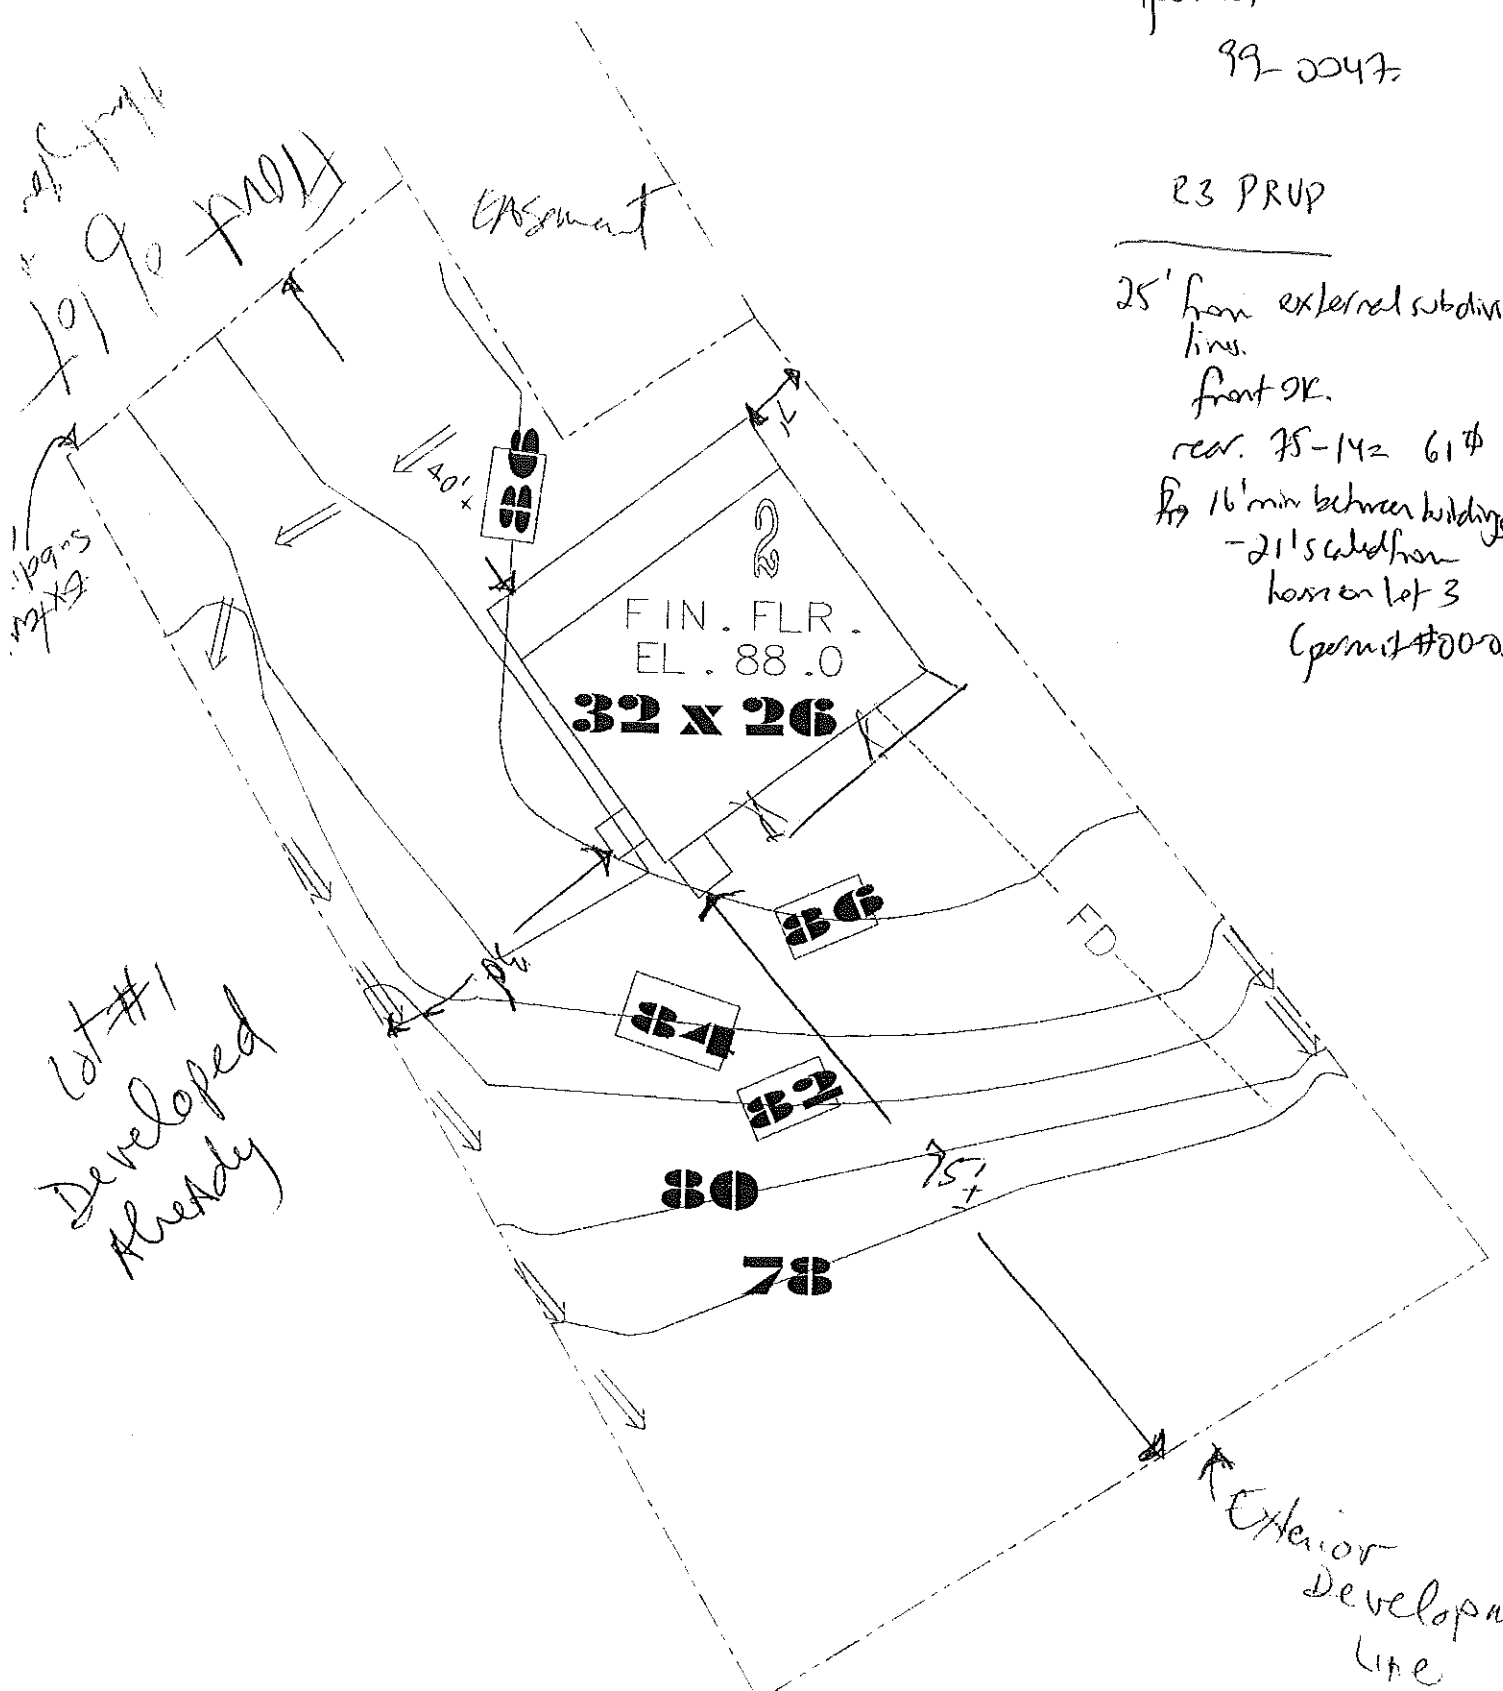 99-0047
R3 PRUP
25' from external subdiv
lines.
front OK.
rear. 75-14= 61'
16' min between buildings
-21' scaled from
house on lot 3
(permit #00-0
Easement
Front of lot
40'±
88
2
FIN. FLR.
EL. 88.0
32 x 26
86
FD
84
82
80
75'±
78
Lot #1
Developed
Already
Exterior
Developm
Line